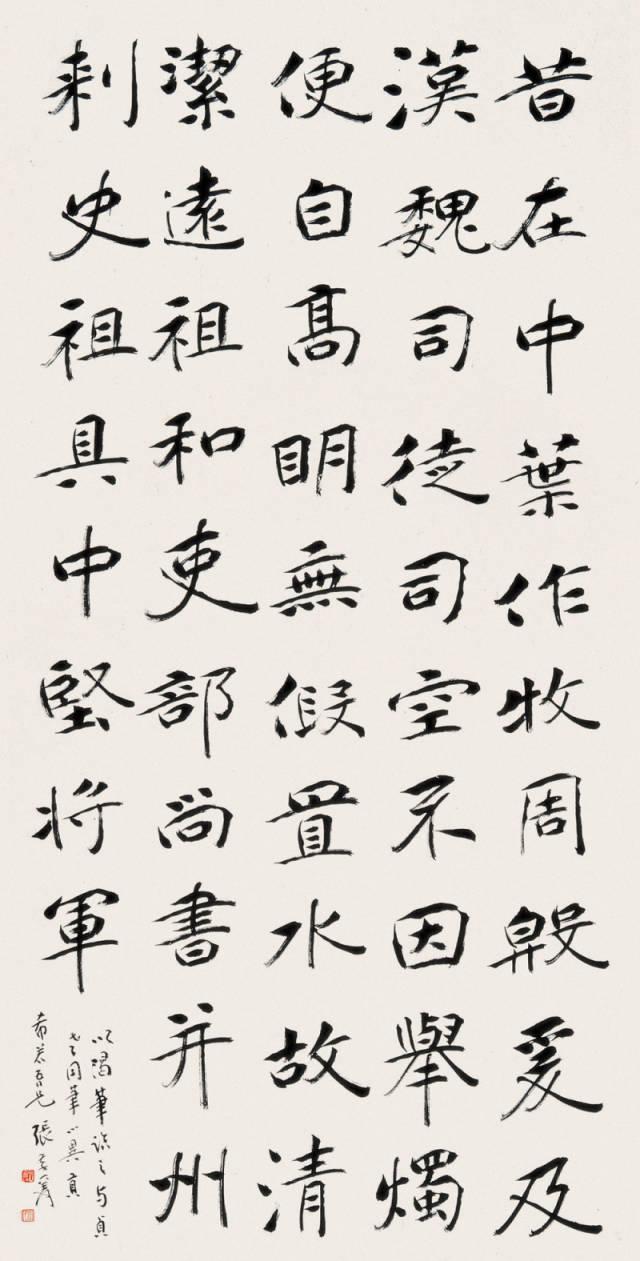 昔在中葉作牧周殷爰及
漢魏司徒司空不因舉燭
便自高明無假置水故清
潔遠祖和吏部尚書并州
刺史祖具中堅將軍
以渴筆臨之与貞
老同筆
吾兄 張爰